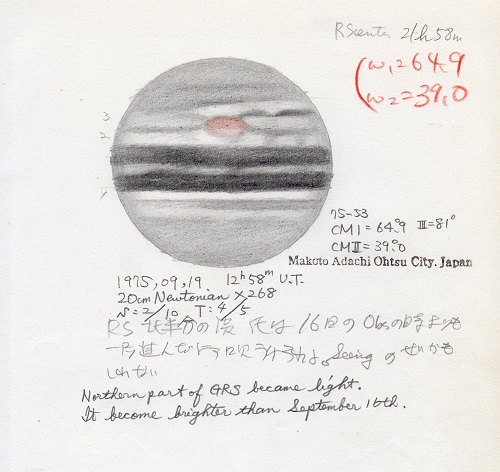 RS center 21h 58m
ω1=64.9
ω2=39.0
3
2
1
75-53
CMI = 64.°9 III=81°
CMII = 39.°0
Makoto Adachi Ohtsu City. Japan
1975, 09, 19. 12h 58m U.T.
20cm Newtonian ×268
S=2/10 T:4/5
RS 北半分の は16日のObsの時よりも
Seeing のせいかも
しれない
Northern part of GRS became light.
It become brighter than September 16th.